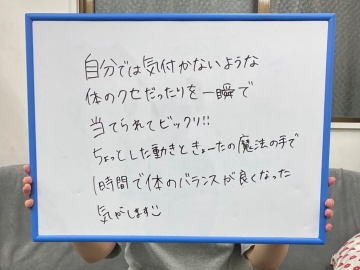 自分では気付かないような
体のクセだったりを一瞬で
当てられてビックリ!!
ちょっとした動きときょーたの魔法の手で
1時間で体のバランスが良くなった
気がします